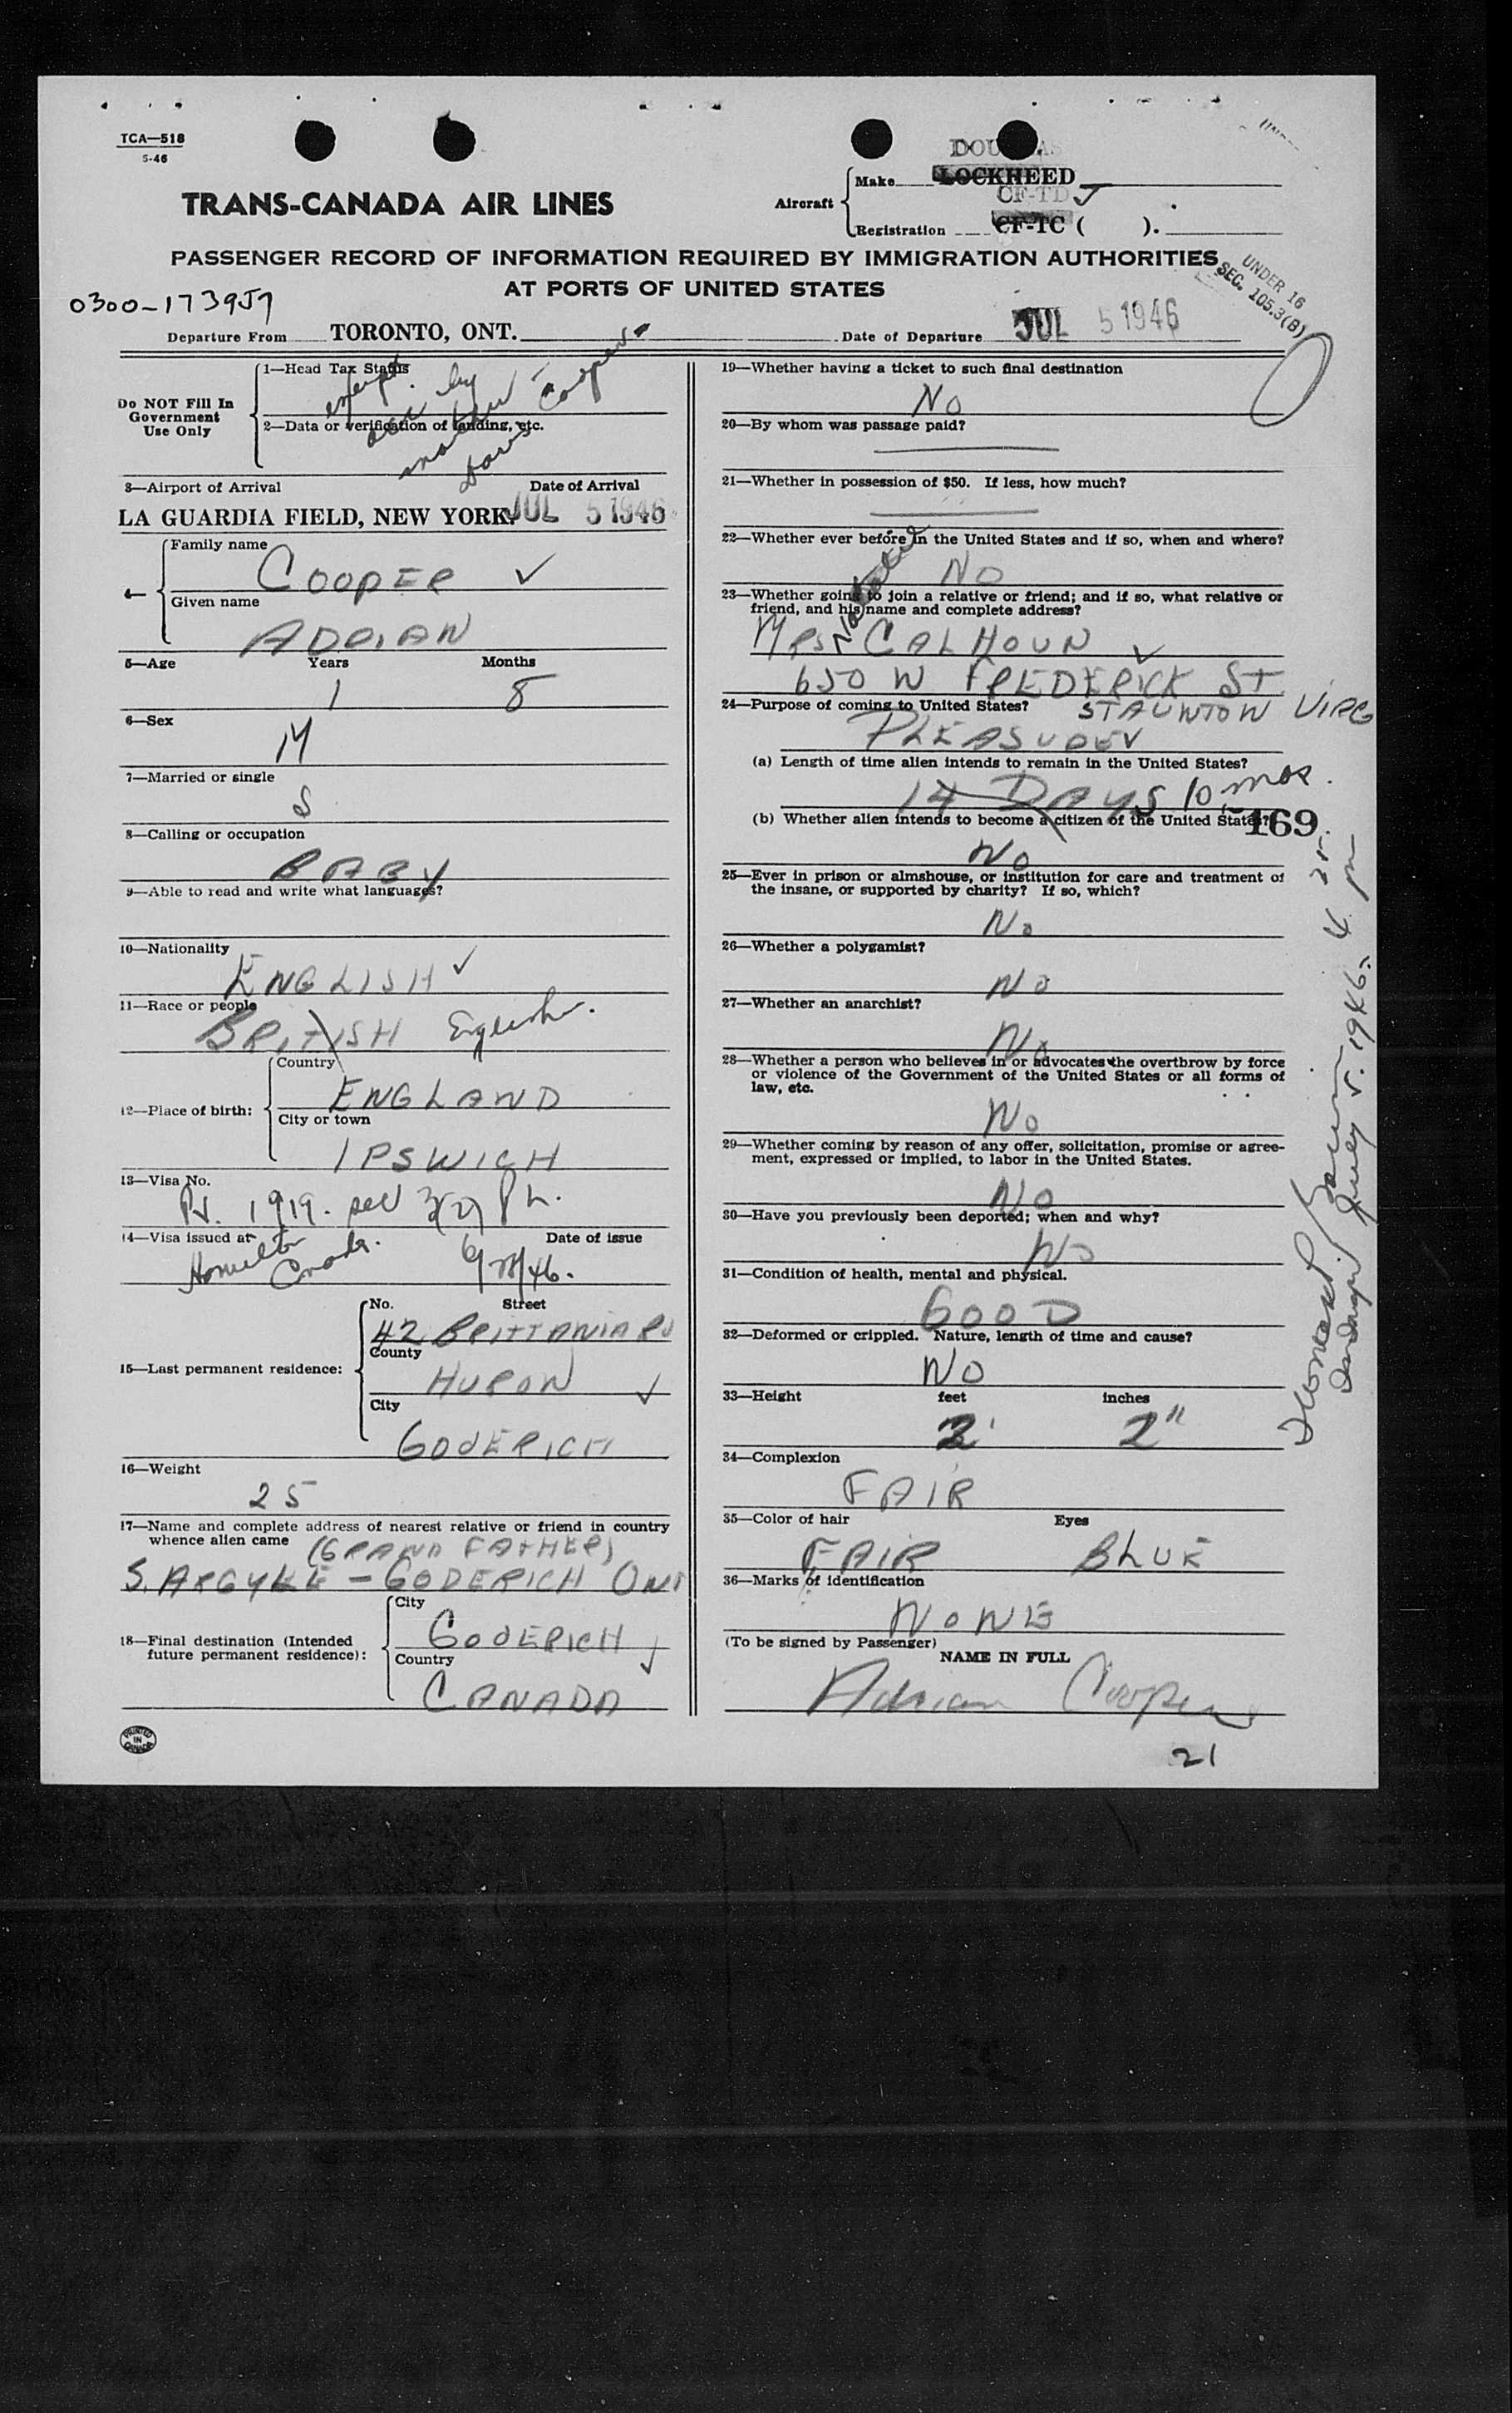 TCA—518
5-46
DOUGLAS
Make LOCKHEED
TRANS-CANADA AIR LINES
Aircraft
CF-TD J
Registration CF-TC ( ).
PASSENGER RECORD OF INFORMATION REQUIRED BY IMMIGRATION AUTHORITIES
AT PORTS OF UNITED STATES
UNDER 16
SEC. 105.3(B)
0300-173957
Departure From TORONTO, ONT.
Date of Departure JUL 5 1946
Do NOT Fill In
Government
Use Only
1—Head Tax Status
exempt
acc by
2—Data or verification of landing, etc.
mother - Cooper
3—Airport of Arrival Date of Arrival
LA GUARDIA FIELD, NEW YORK. JUL 5 1946
4— Family name
COOPER ✓
Given name
ADRIAN
5—Age Years Months
1 8
6—Sex
M
7—Married or single
S
8—Calling or occupation
BABY
9—Able to read and write what languages?
10—Nationality
ENGLISH ✓
11—Race or people
BRITISH English.
12—Place of birth:
Country
ENGLAND
City or town
IPSWICH
13—Visa No.
1919. sec 3(2)
14—Visa issued at Date of issue
Hamilton
Canada. 6/28/46.
15—Last permanent residence:
No. Street
42 BRITTANIA RD
County
HURON ✓
City
GODERICH
16—Weight
25
17—Name and complete address of nearest relative or friend in country
whence alien came (GRAND FATHER)
S. ARGYLE - GODERICH ONT
18—Final destination (Intended
future permanent residence):
City
GODERICH ✓
Country
CANADA
PRINTED
IN
CANADA
19—Whether having a ticket to such final destination
NO
20—By whom was passage paid?
21—Whether in possession of $50. If less, how much?
22—Whether ever before in the United States and if so, when and where?
NO
23—Whether going to join a relative or friend; and if so, what relative or
friend, and his name and complete address?
MRS CALHOUN ✓
650 W FREDERICK ST
STAUNTON VIRG
24—Purpose of coming to United States?
PLEASURE ✓
(a) Length of time alien intends to remain in the United States?
14 DAYS 10 mos.
(b) Whether alien intends to become a citizen of the United States?
169
NO
25—Ever in prison or almshouse, or institution for care and treatment of
the insane, or supported by charity? If so, which?
NO
26—Whether a polygamist?
NO
27—Whether an anarchist?
NO
28—Whether a person who believes in or advocates the overthrow by force
or violence of the Government of the United States or all forms of
law, etc.
NO
29—Whether coming by reason of any offer, solicitation, promise or agree-
ment, expressed or implied, to labor in the United States.
NO
30—Have you previously been deported; when and why?
NO
31—Condition of health, mental and physical.
GOOD
32—Deformed or crippled. Nature, length of time and cause?
NO
33—Height feet inches
2' 2"
34—Complexion
FAIR
35—Color of hair Eyes
FAIR BLUE
36—Marks of identification
NONE
(To be signed by Passenger)
NAME IN FULL
Adrian Cooper
21
July 5. 1946.